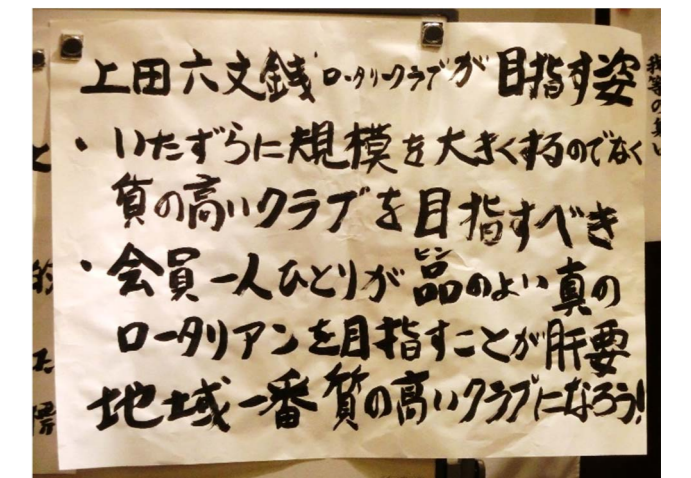 上田六文銭ロータリークラブが目指す姿
・いたずらに規模を大きくするのでなく
質の高いクラブを目指すべき
・会員一人ひとりが品のよい真の
ヒン
ロータリアンを目指すことが肝要
地域一番質の高いクラブになろう!
我等の集い